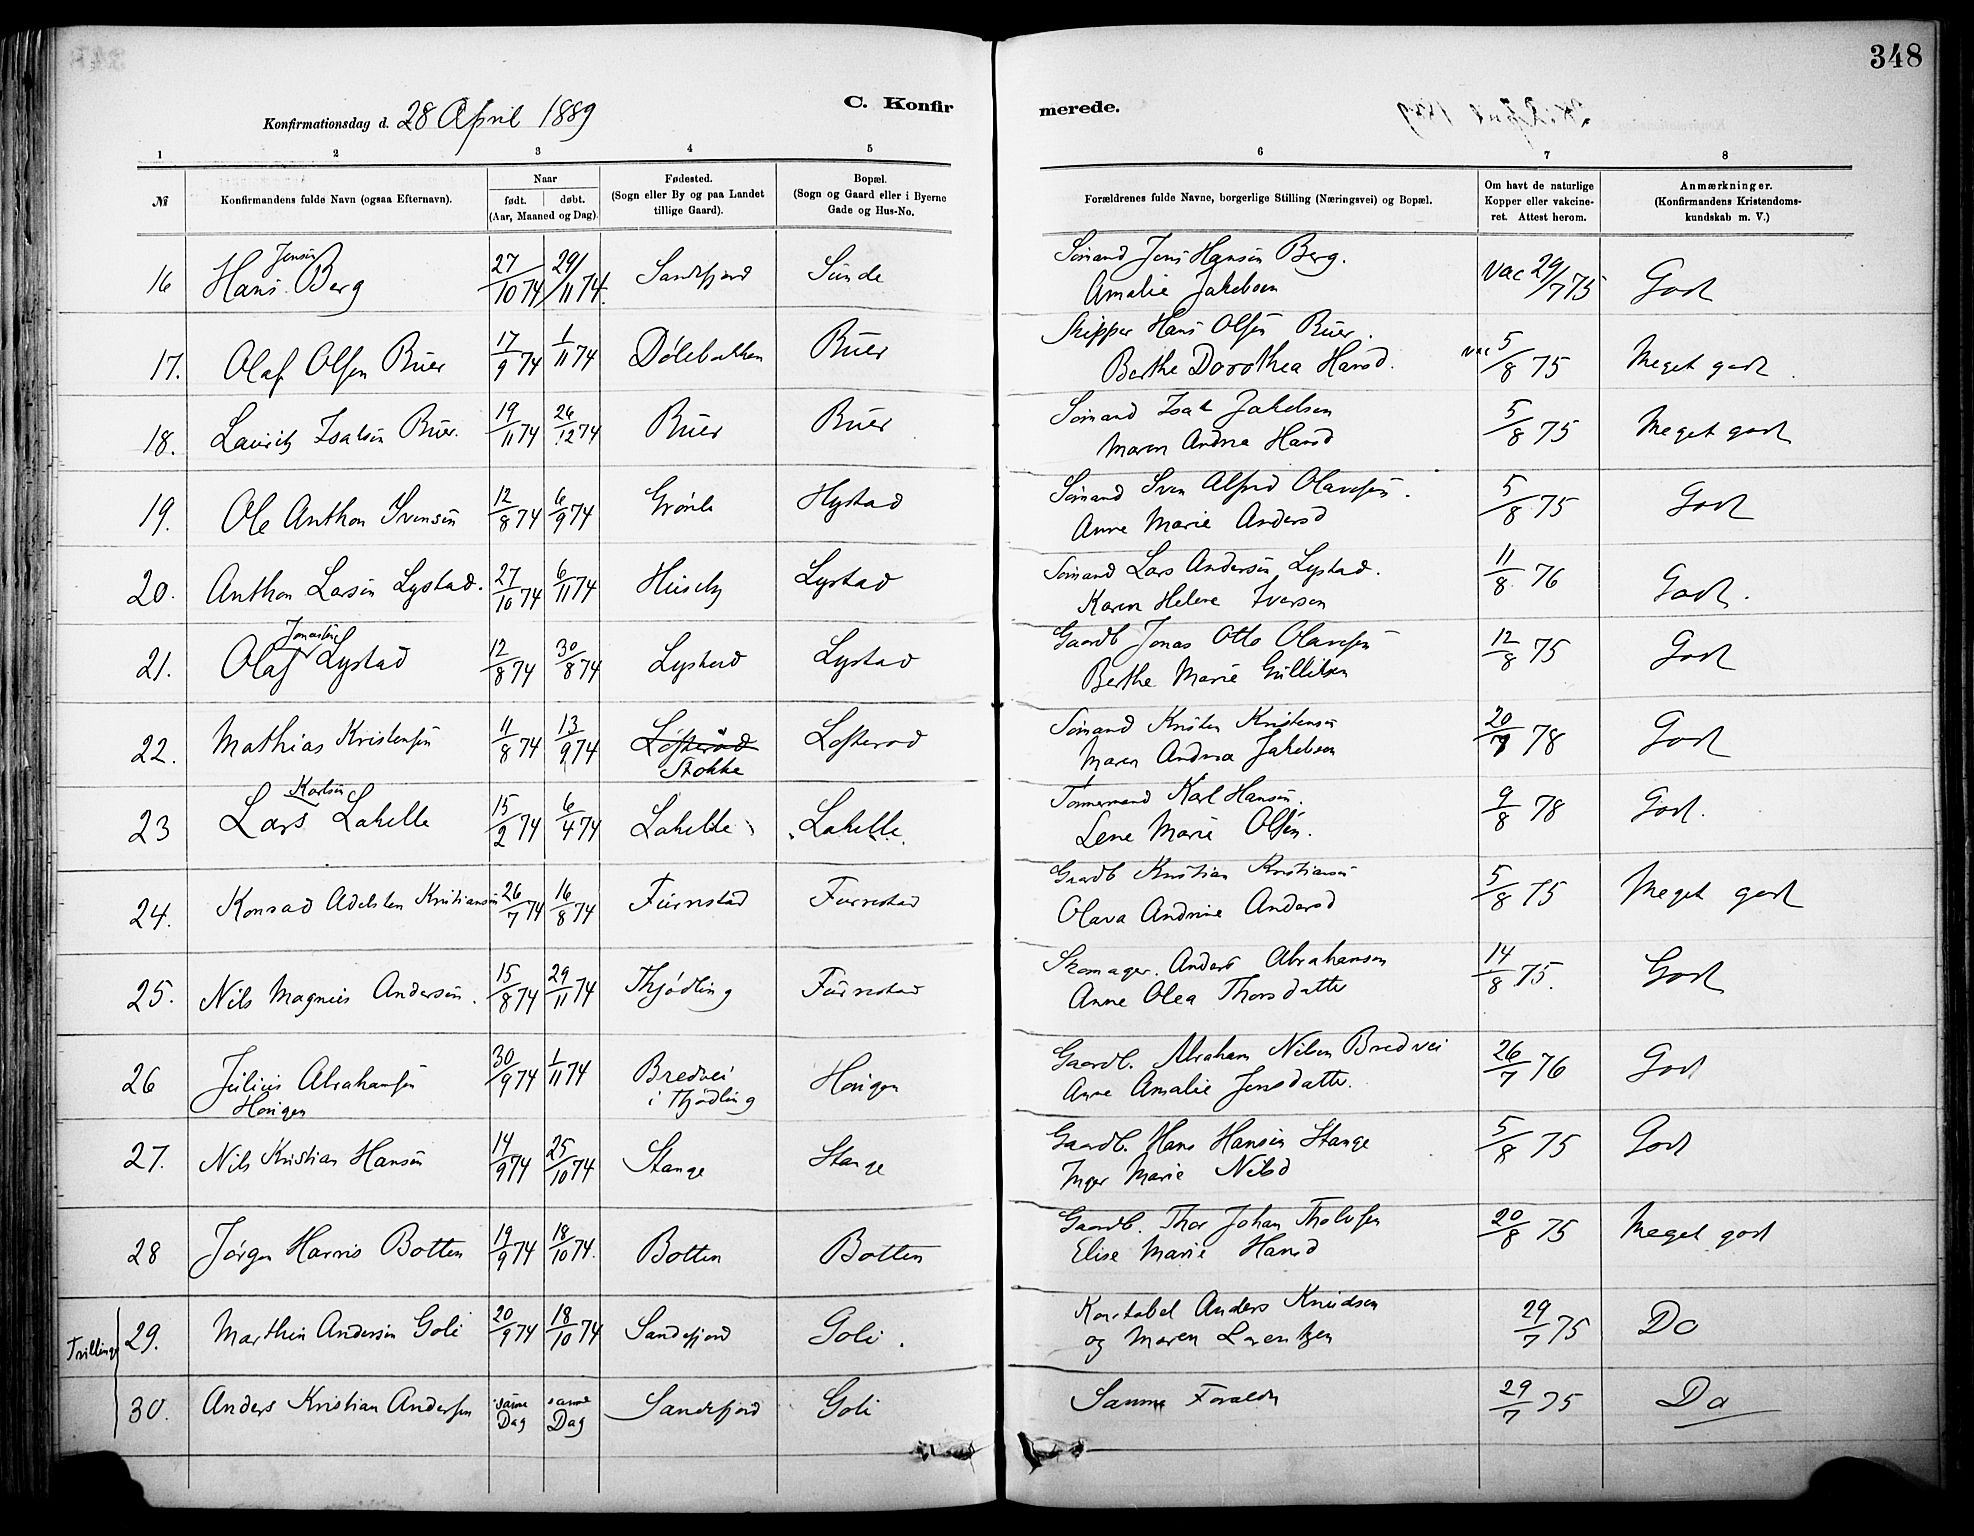 348
C. Konfir
merede.
Konfirmationsdag d. 28 April 1889
1 2 3 4 5 6 7 8
№
Konfirmandens fulde Navn (ogsaa Efternavn).
Naar
født. døbt.
(Aar, Maaned og Dag).
Fødested.
(Sogn eller By og paa Landet
tillige Gaard).
Bopæl.
(Sogn og Gaard eller i Byerne
Gade og Hus-No.
Forældrenes fulde Navne, borgerlige Stilling (Næringsvei) og Bopæl.
Om havt de naturlige
Kopper eller vakcine-
ret. Attest herom.
Anmærkninger.
(Konfirmandens Kristendoms-
kundskab m. V.)
Jensen
16 Hans Berg 27/10 74 29/11 74. Sandefjord Sunde Sömand Jens Hansen Berg. vac 29/7 75 Godt
Amalie Jakobsen
17. Olaf Olsen Buer 17/9 74 1/11 74 Dölebakken Buer Skipper Hans Olsen Buer. vac 5/8 75 Meget godt
Berthe Dorothea Hansd.
18. Lauritz Isaksen Buer. 19/11 74 26/12 74 Buer Buer Sömand Isak Jakobsen 5/8 75 Meget godt
Maren Andrea Hansd
19. Ole Anthon Svensen 12/8 74 6/9 74 Grönli Hystad Sömand Sven Alfred Olavesen. 5/8 75 Godt
Anne Marie Andersd
20. Anthon Larsen Lystad. 27/10 74 6/11 74 Huseby Lystad Sömand Lars Andersen Lystad. 11/8 76 Godt.
Karen Helene Iversen
Jonassen
21. Olaf Lystad 12/8 74 30/8 74 Lystad Lystad Gaardb Jonas Otto Olavesen 12/8 75 Godt
Berthe Marie Gulliksen
22. Mathias Kristensen 11/8 74 13/9 74 Löfteröd Lofterod Sömand Kristen Kristensen 20/7 78 Godt
Stokke Maren Andrea Jakobsen
Karlsen
23 Lars Lahelle 15/2 74 6/4 74 Lahelle Lahelle. Tömmermand Karl Hansen. 9/8 78 Godt.
Lene Marie Olsen.
24. Konrad Adelsten Kristiansen 26/7 74 16/8 74 Furustad Furustad Gaardb Kristian Kristiansen 5/8 75 Meget godt
Olava Andrine Andersd
25. Nils Magnus Andersen. 15/8 74 29/11 74 Thjödling Furustad Skomager. Anders Abrahamsen 14/8 75. Godt
Anne Olea Thorsdatter
26 Julius Abrahamsen 30/9 74 1/11 74 Bredvei Horigen Gaardb. Abraham Nilsen Bredvei 26/7 76 Godt
Horigen i Thjödling Anne Amalie Jensdatter.
27. Nils Kristian Hansen 14/9 74 25/10 74 Stange Stange Gaardb. Hans Hansen Stange 5/8 75 Godt
Inger Marie Nilsd
28 Jörgen Harris Botten 19/9 74 18/10 74. Botten Botten Gaardb. Thor Johan Tholvsen 20/8 75 Meget godt
Elise Marie Hansd
Tvillinger 29. Marthin Andersen Goli 20/9 74 18/10 74 Sandefjord Goli. Konstabel Anders Knudsen 29/7 75 Do
og Maren Lorentzen
30. Anders Kristian Andersen samme Dag samme Dag Sandefjord Goli Samme Foraldre 29/7 75 Do